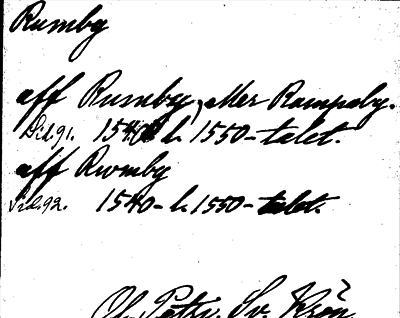 Rumby
aff Rumby, eller Rampaby.
Sid. 91. 1540 l. 1550-talet.
aff Rwmby
Sid. 92. 1540- l. 1550-talet.
Ol. Petri. Sv. Krön.